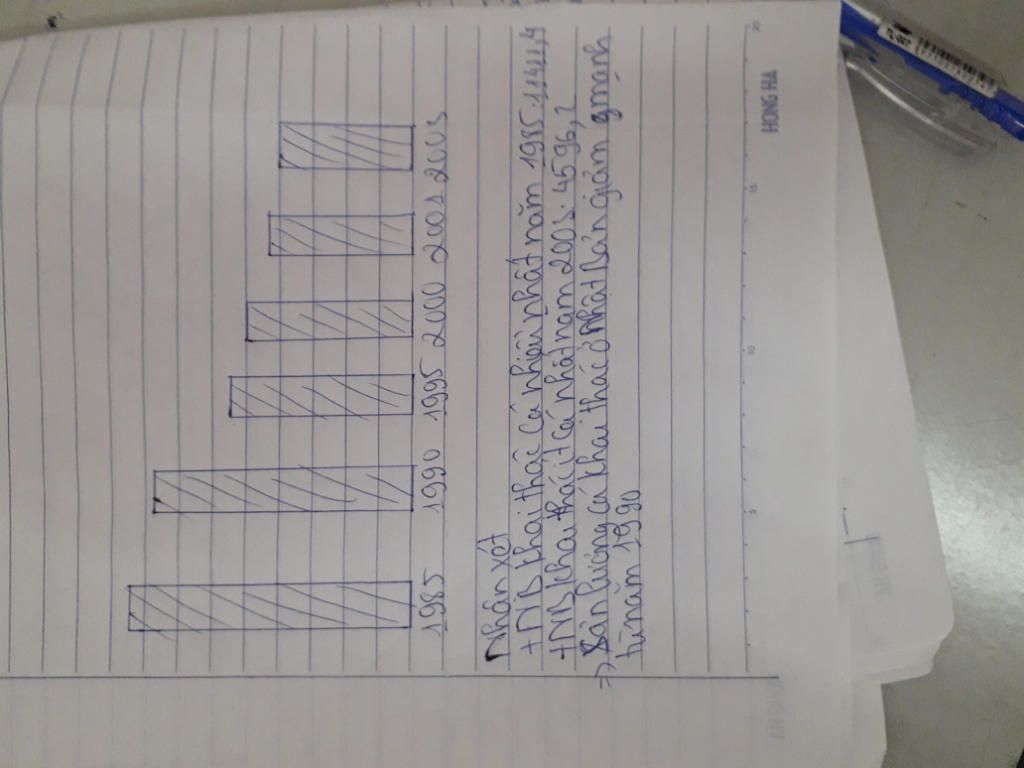 1985 1990 1995 2000 2001 2003
Nhận xét
+ NB khai thác cá nhiều nhất năm 1985. 11411,4
+ NB khai thác ít cá nhất năm 2003. 4596,2
=> Sản lượng cá khai thác ở Nhật Bản giảm mạnh
từ năm 1990
5 10 15 20
HONG HA